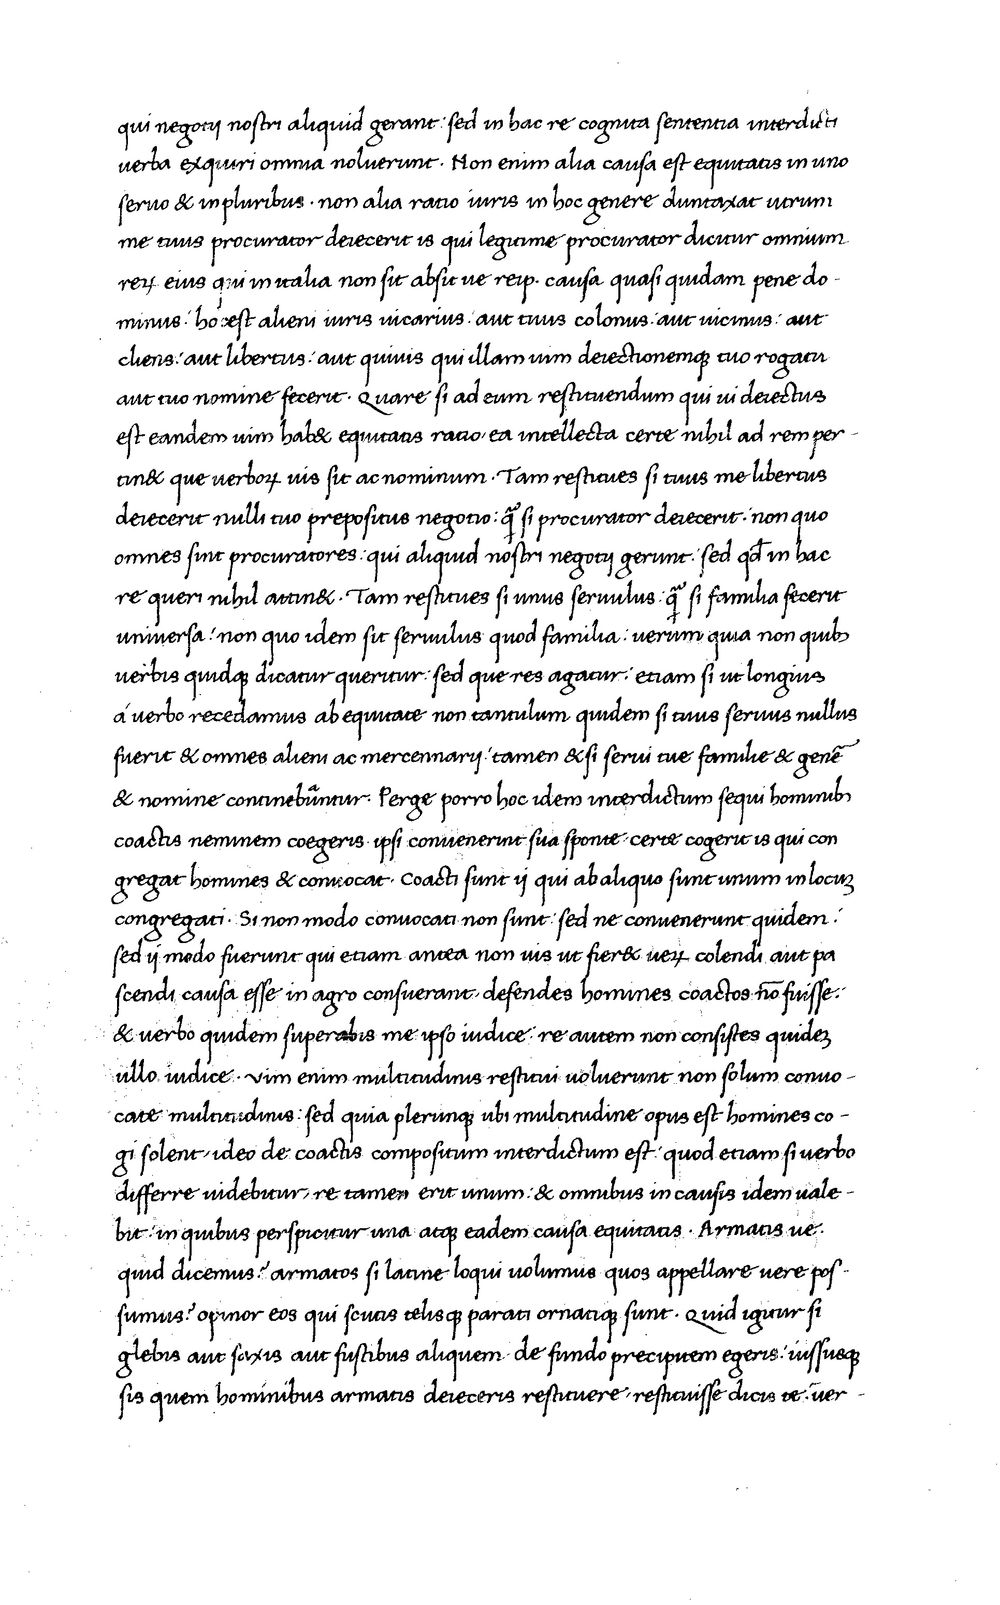 qui negotij nostri aliquid gerant: sed in hac re cognita sententia interdicti
uerba exquiri omnia noluerunt. Non enim alia causa est equitatis in uno
seruo & in pluribus. non alia ratio iuris in hoc genere duntaxat utrum
me tuus procurator deiecerit is qui legitime procurator dicitur omnium
reꝝ eius qui in italia non sit absit ue reip. causa quasi quidam pene do-
minus: hoc est alieni iuris uicarius: aut tuus colonus: aut uicinus: aut
cliens: aut libertus: aut quiuis qui illam uim deiectionemqꝫ tuo rogatu
aut tuo nomine fecerit. Quare si ad eum restituendum qui ui deiectus
est eandem uim hab& equitatis ratio, ea intellecta certe nihil ad rem per-
tin& que uerboꝝ uis sit ac nominum. Tam restitues si tuus me libertus
deiecerit nulli tuo prepositus negotio: q̃ si procurator deiecerit. non quo
omnes sint procuratores: qui aliquid nostri negotij gerunt: sed qd̃ in hac
re queri nihil attin&. Tam restitues si unus seruulus: q̃ si familia fecerit
uniuersa: non quo idem sit seruulus quod familia: uerum quia non quibꝫ
uerbis quidqꝫ dicatur queritur: sed que res agatur: etiam si ut longius
á uerbo recedamus ab equitate non tantulum quidem si tuus seruus nullus
fuerit & omnes alieni ac mercennarij: tamen & si serui tue familie & genē
& nomine continebũntur. Perge porro hoc idem interdictum sequi hominibꝫ
coactis neminem coegeris ipsi conuenerunt sua sponte. certe cogerit is qui con
gregat homines & conuocat. Coacti sunt ij qui ab aliquo sunt unum in locuꝫ
congregati. Si non modo conuocati non sunt: sed ne conuenerunt quidem:
sed ij modo fuerunt qui etiam antea non uis ut fier& ueꝝ colendi aut pa
scendi causa esse in agro consuerant, defendes homines coactos nō fuisse:
& uerbo quidem superabis me ipso iudice: re autem non consistes quideꝫ
ullo iudice. Vim enim multitudinis restitui uoluerunt non solum conuo-
cate multitudinis: sed quia plerunqꝫ ubi multitudine opus est homines co-
gi solent, ideo de coactis compositum interdictum est: quod etiam si uerbo
differre uidebitur, re tamen erit unum: & omnibus in causis idem uale-
bit: in quibus perspicitur una atqꝫ eadem causa equitatis. Armatis ue:
quid dicemus? armatos si latine loqui uolumus quos appellare uere pos-
sumus? opinor eos qui scutis telisqꝫ parati ornatiqꝫ sunt. Quid igitur si
glebis aut saxis aut fustibus aliquem de fundo precipitem egeris: iussusqꝫ
sis quem hominibus armatis deieceris restituere, restituisse dicis te. uer-